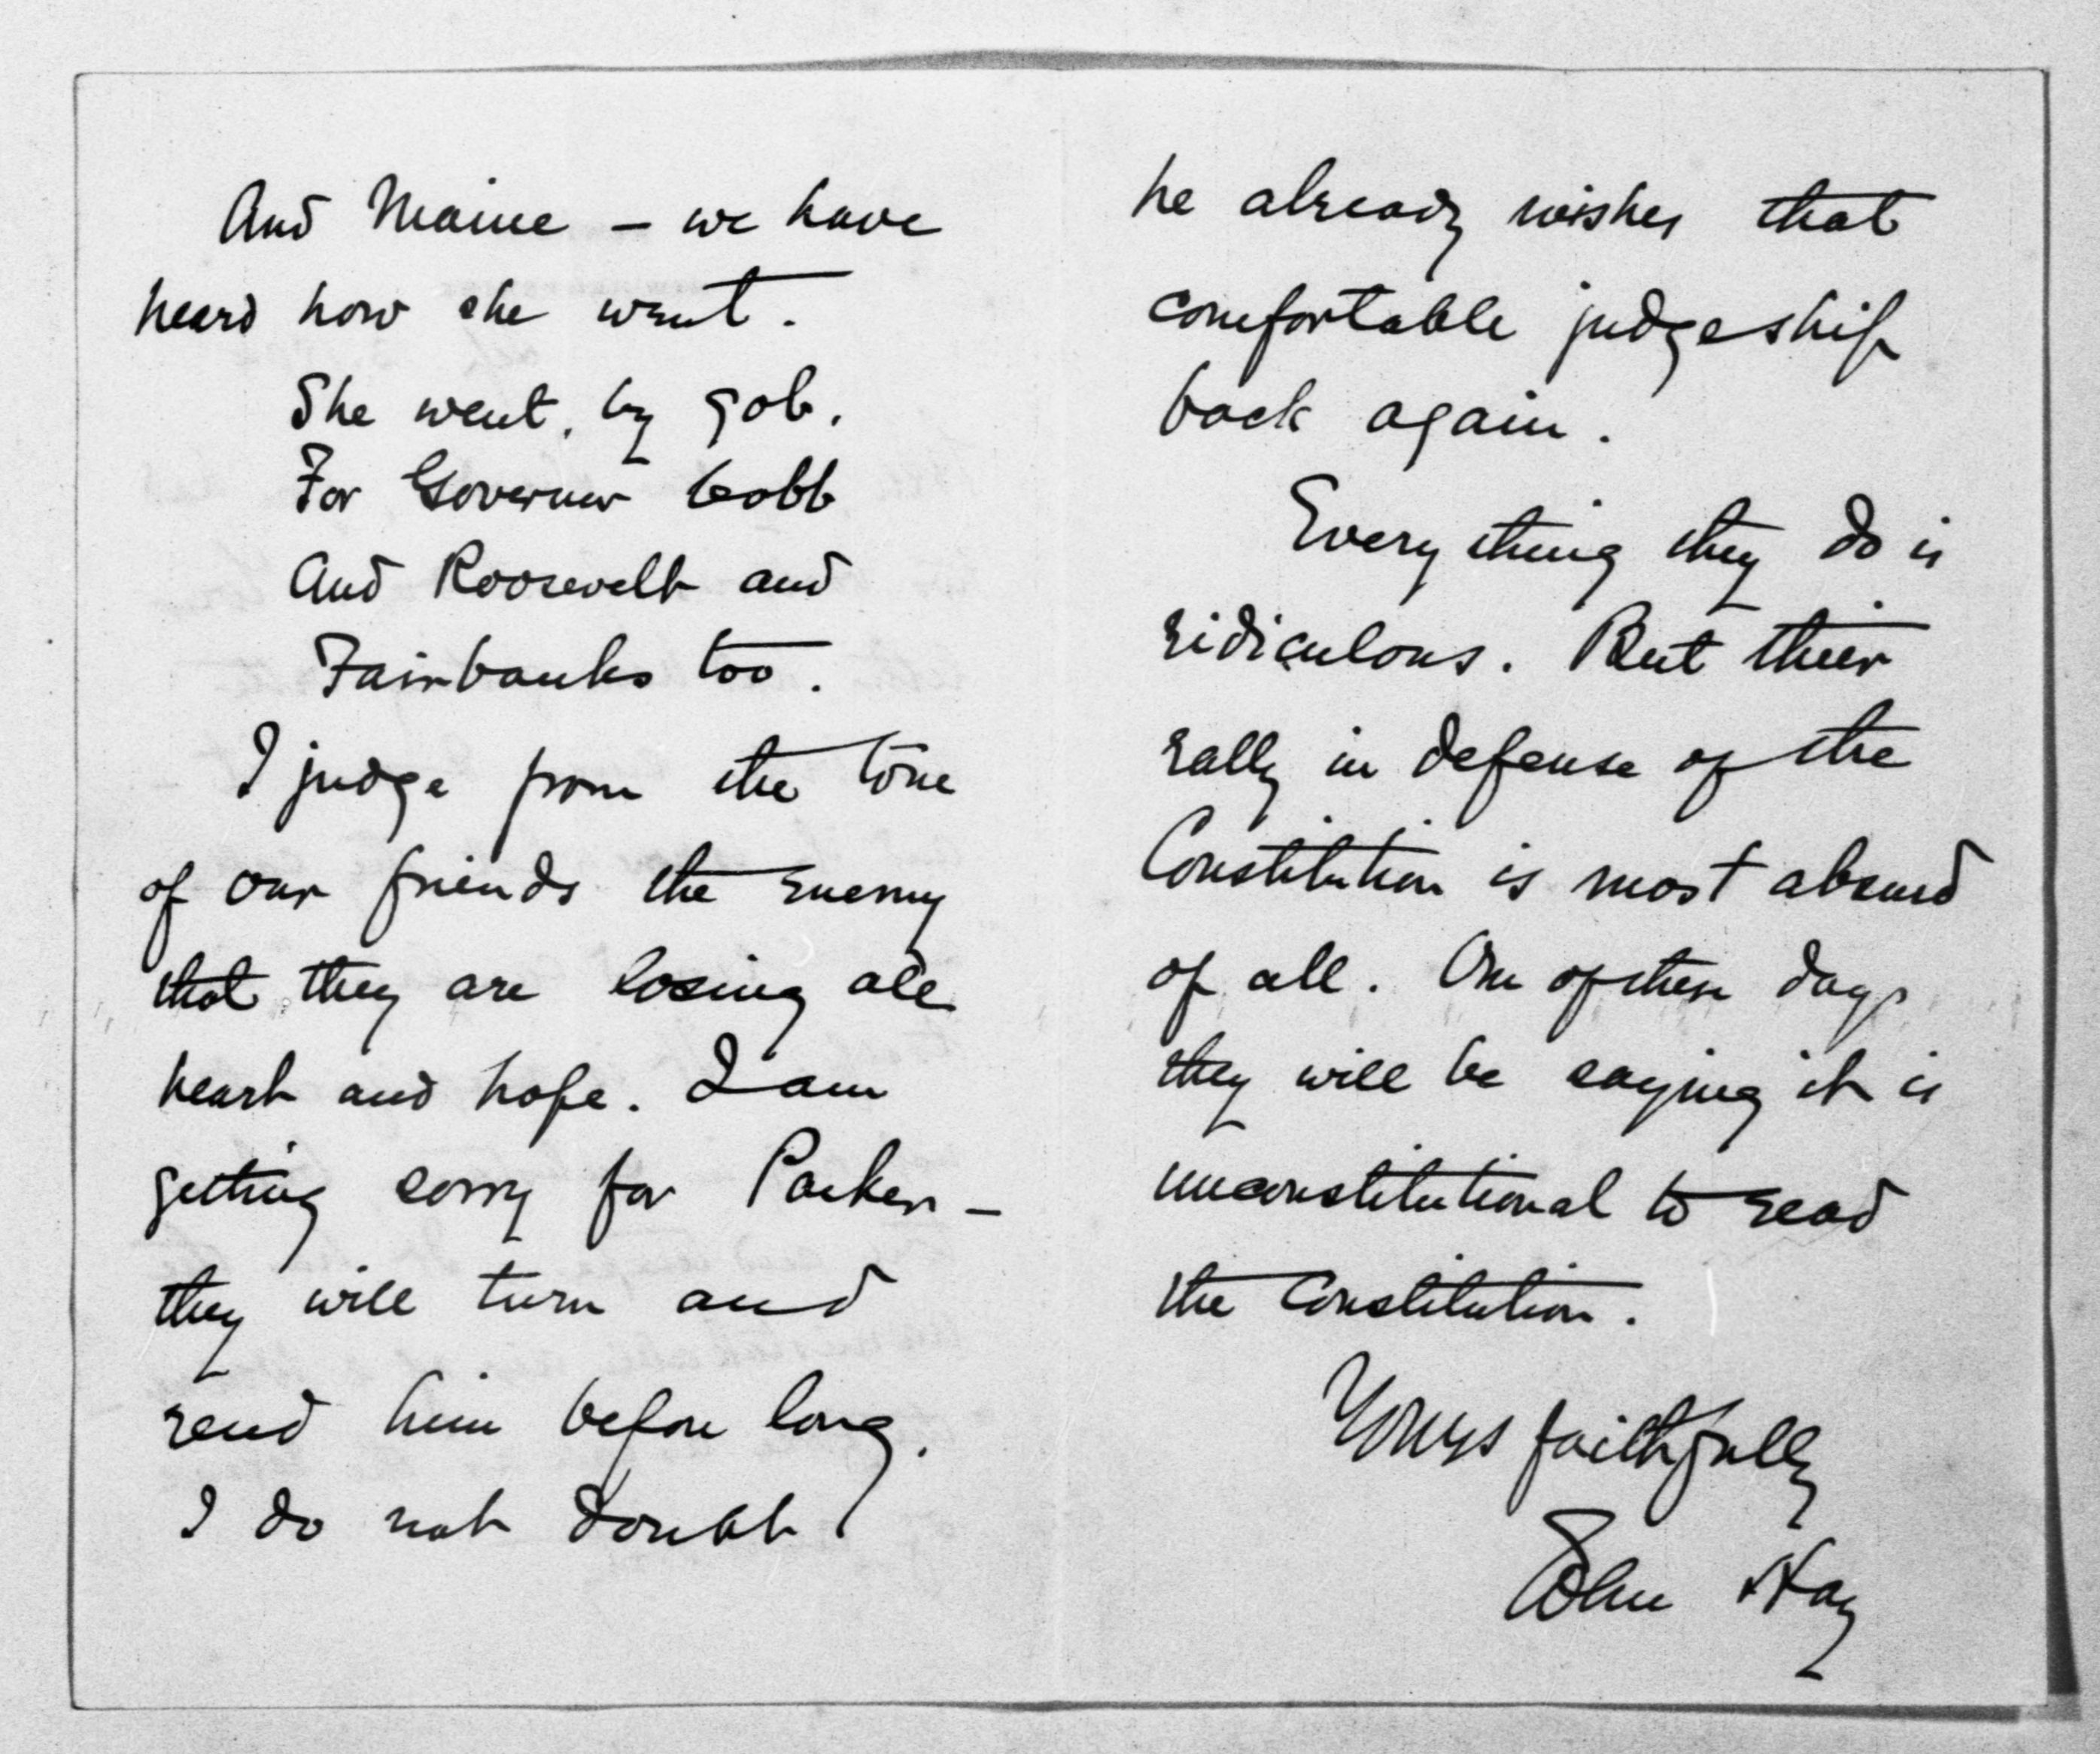 And Maine – we have
heard how she went.
She went, by gob,
For Governor Cobb
And Roosevelt and
Fairbanks too.
I judge from the tone
of our friends the enemy
that they are losing all
heart and hope. I am
getting sorry for Parker –
they will turn and
rend him before long.
I do not doubt
he already wishes that
comfortable judgeship
back again.
Every thing they do is
ridiculous. But their
rally in defense of the
Constitution is most absurd
of all. One of these days
they will be saying it is
unconstitutional to read
the Constitution.
Yours faithfully
John Hay